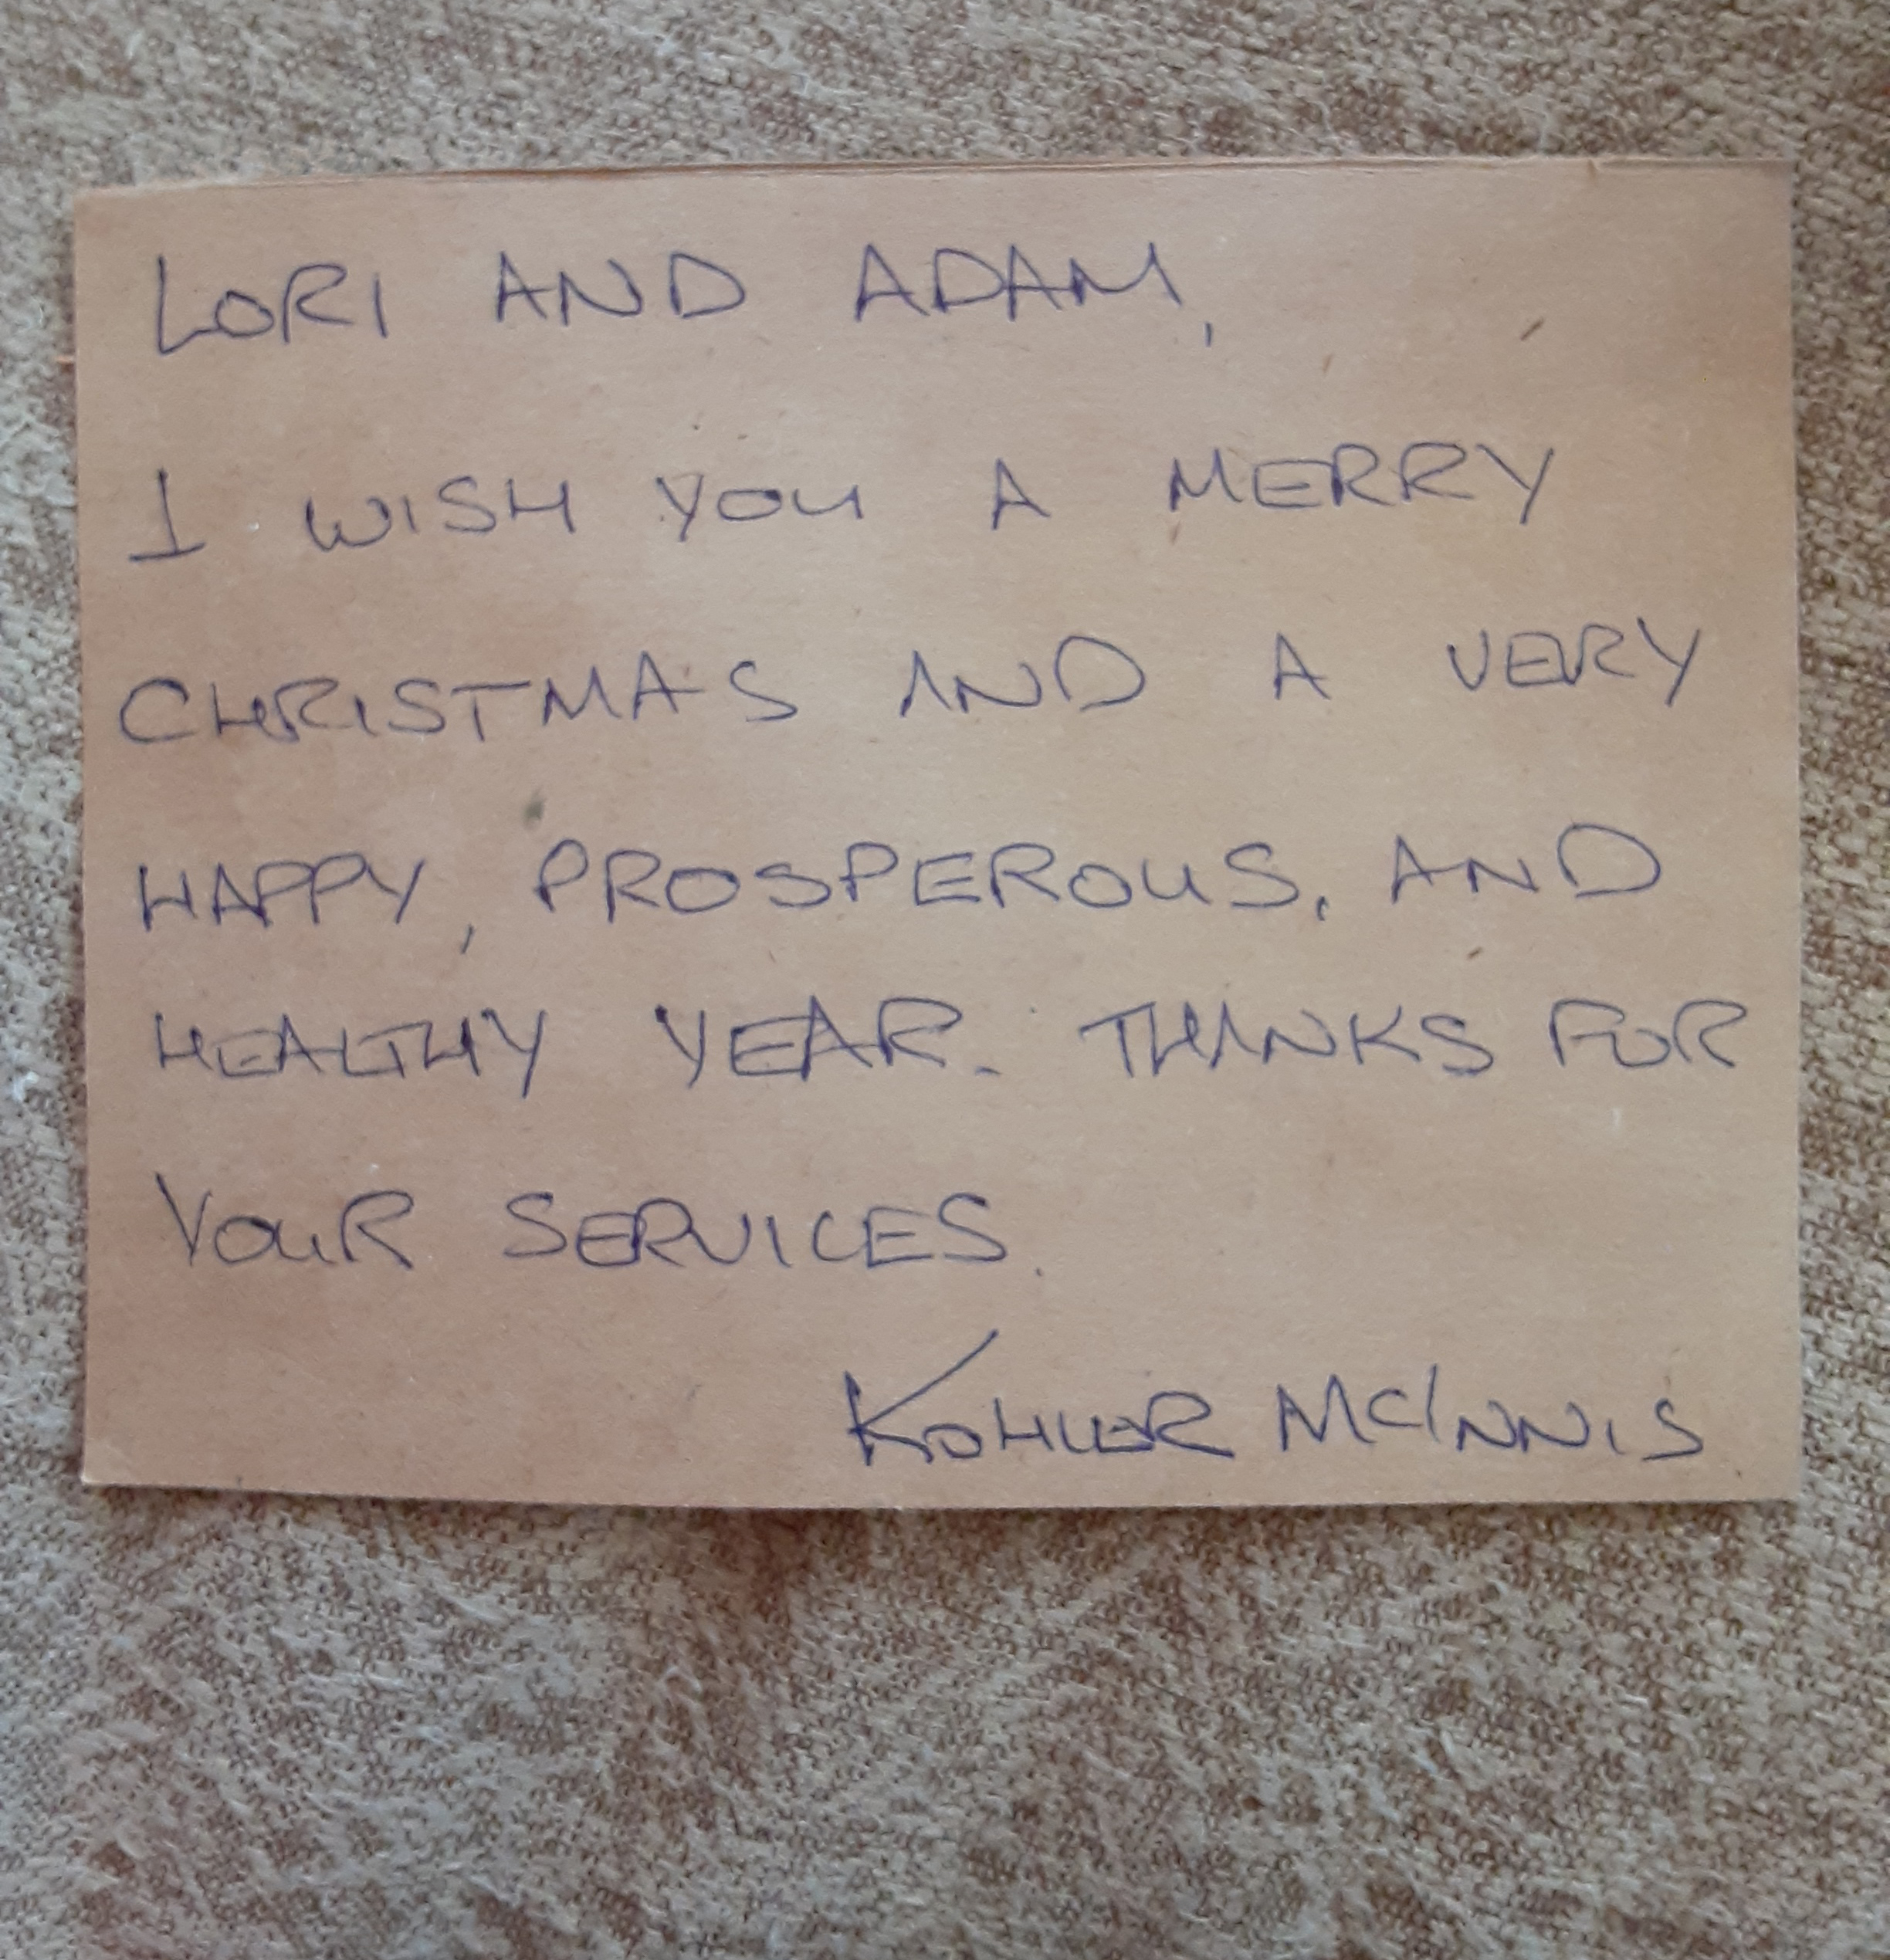 LORI AND ADAM,
I WISH YOU A MERRY
CHRISTMAS AND A VERY
HAPPY, PROSPEROUS, AND
HEALTHY YEAR. THANKS FOR
YOUR SERVICES.
KOHLER MCINNIS